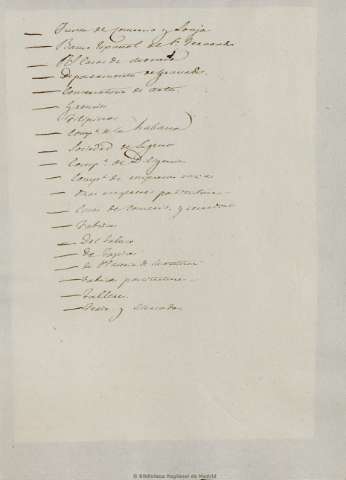 — Junta de comercio y Lonja
— Banco Español de Sn Fernando
— Rl Casa de Moneda
— Departamento de Grabado
— Conservatorio de Artes
— Gremios
— Filipinas
— Compa de la Habana
— Sociedad de Seguros
— Compa de
— Compa de empresas varias
— Otras empresas particulares
— Casas de comercio y
— Fabricas
— Del Tabaco
— De Tapices
— de
— Fabricas particulares
— Talleres
— y Mercados
© Biblioteca Regional de Madrid